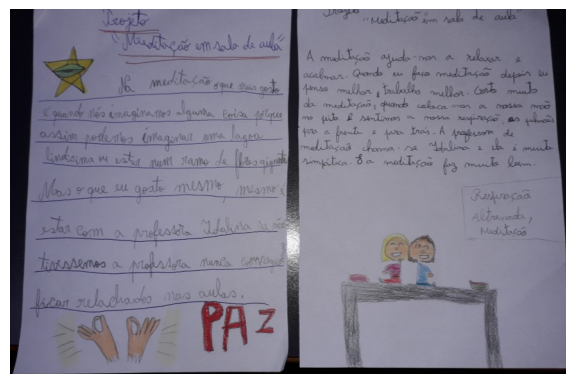 Projeto
"Meditação em sala de aula"
Na meditação o que mais gosto
é quando nós imaginamos alguma coisa porque
assim podemos imaginar uma lagoa
lindíssima ou estar num ramo de flores gigante
Mas o que eu gosto mesmo, mesmo é
estar com a professora Idalina se não
tivéssemos a professora nunca conseguia
ficar relachados nas aulas.
PAZ
Projeto
"Meditação em sala de aula"
A meditação ajuda-nos a relaxar e
acalmar. Quando eu faço meditação depois eu
penso melhor, trabalho melhor. Gosto muito
da meditação, quando coloca-mos a nossa mão
no peito e sentimos a nossa respiração, os
para a frente e para trás. A professora de
meditação chama-se Idalina e ela é muito
simpática. E a meditação faz muito bem.
Respiração
Alternada,
Meditação